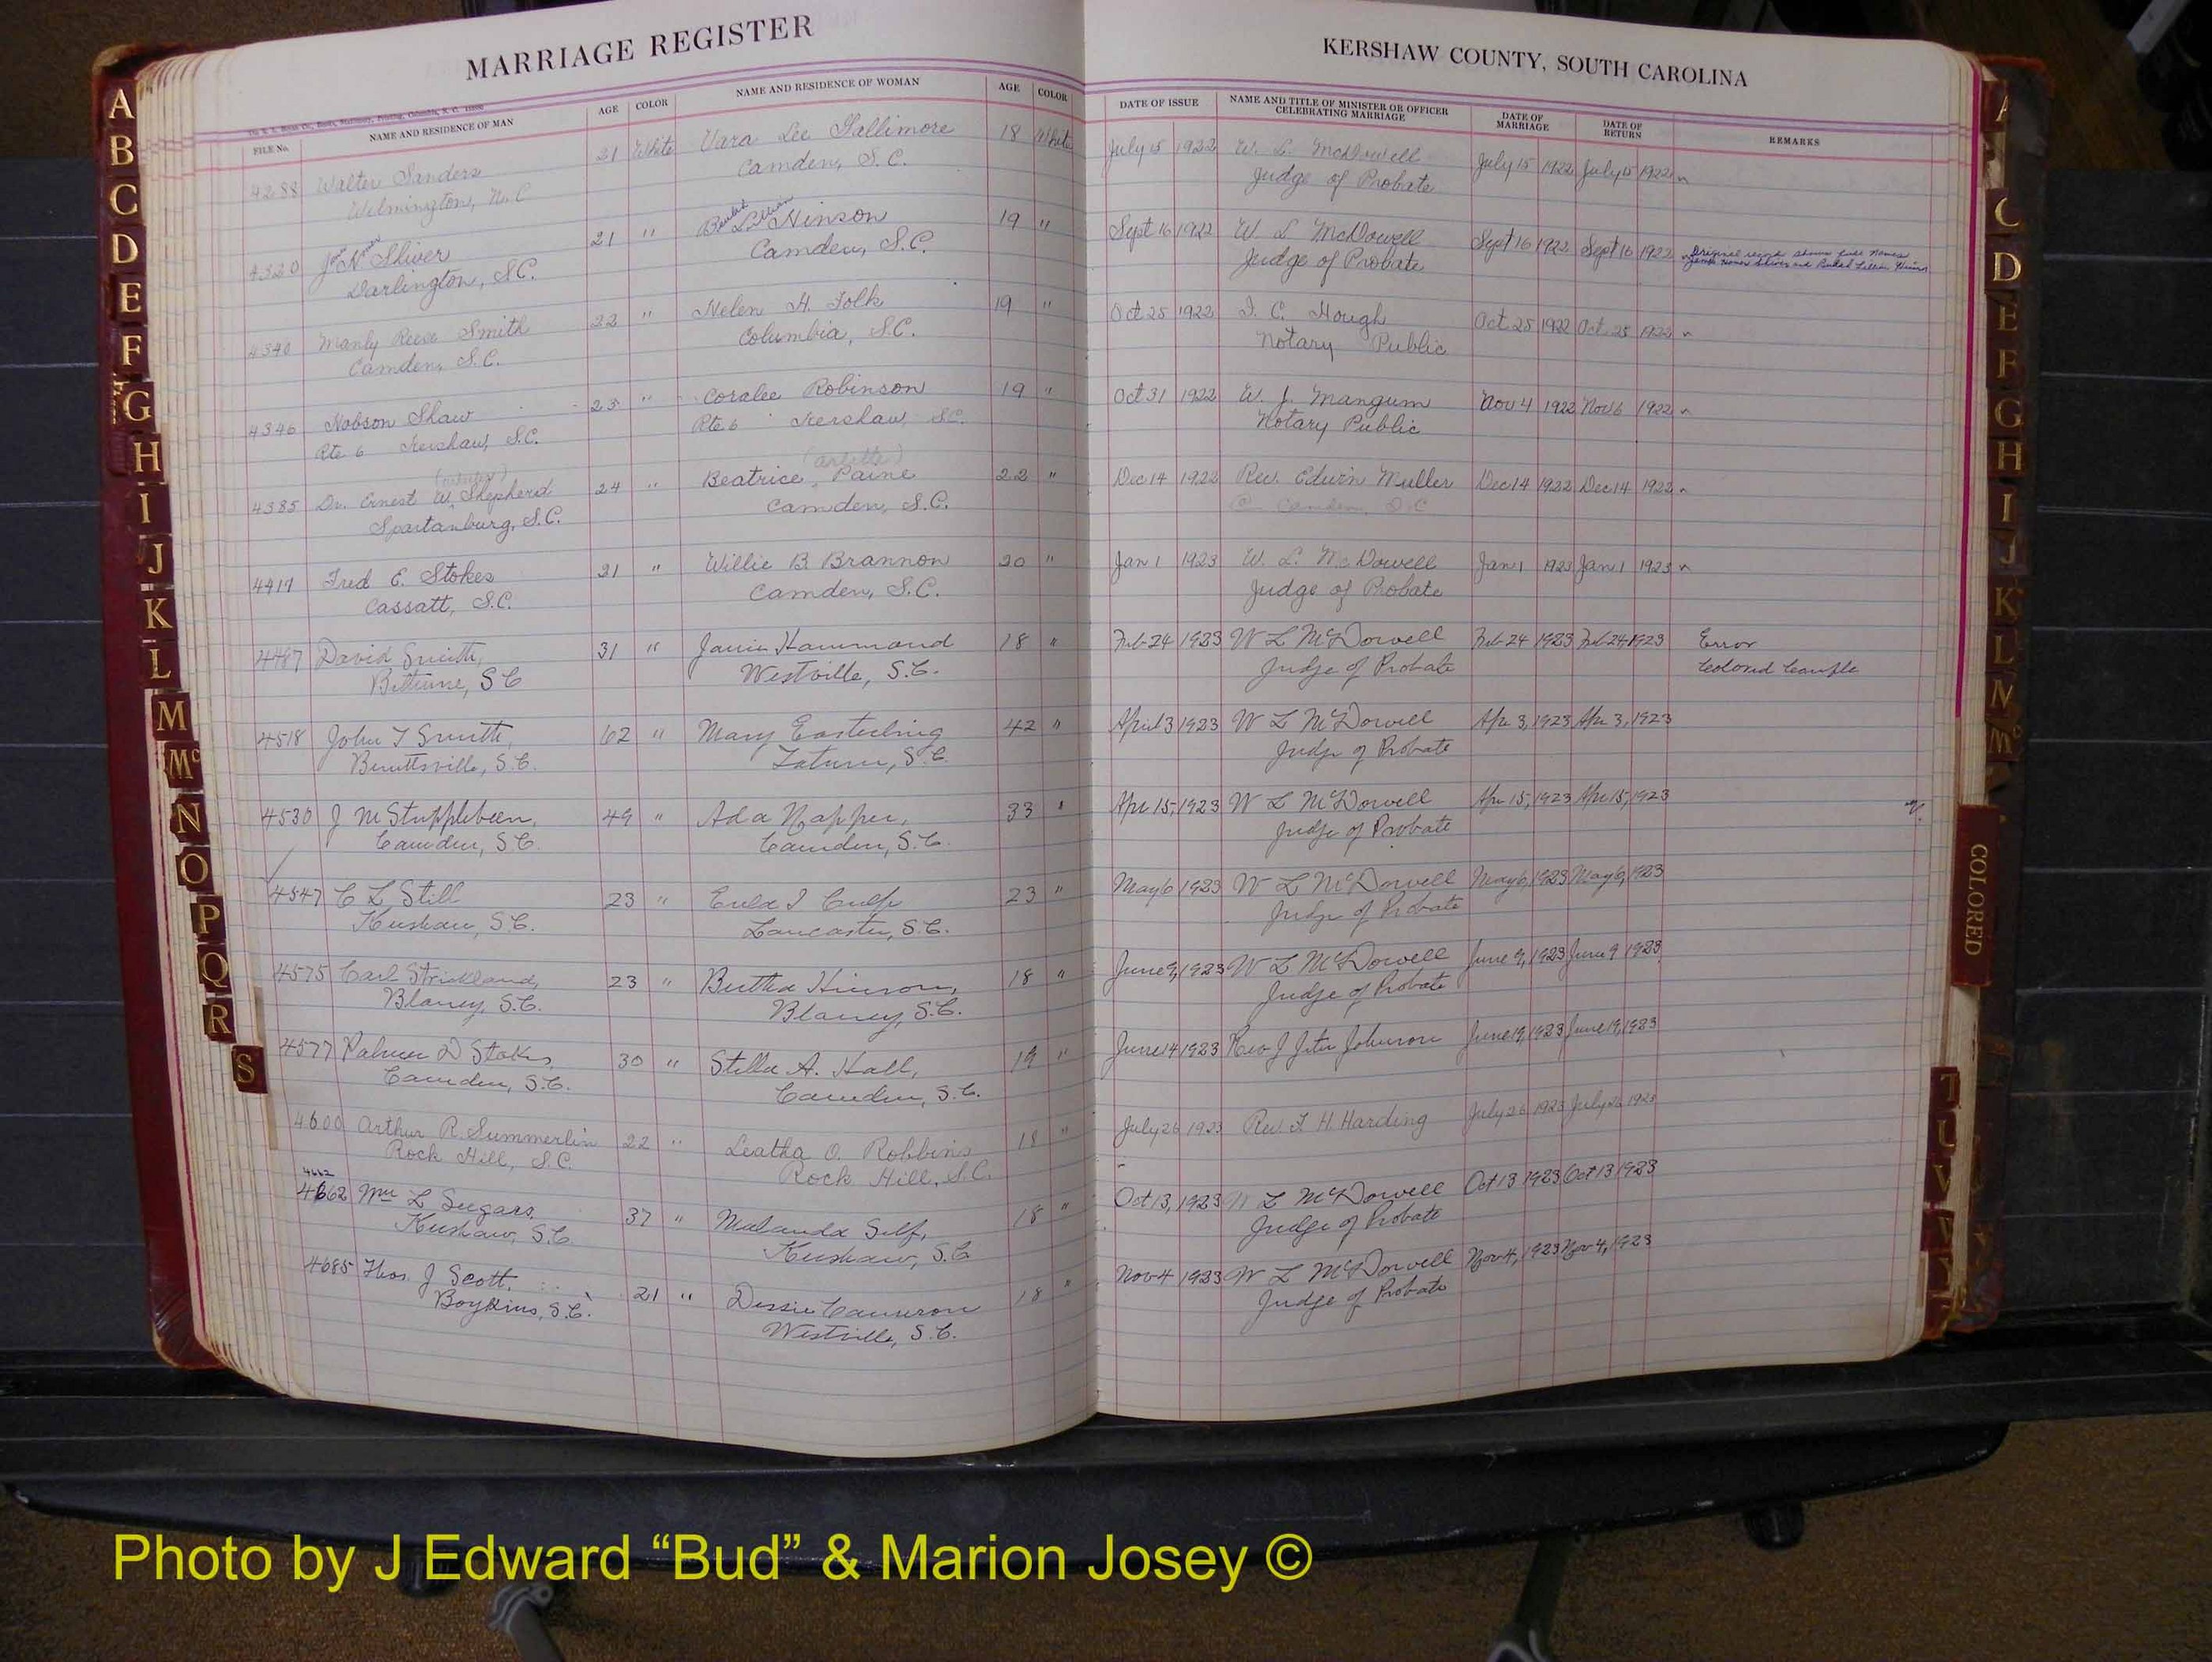 MARRIAGE REGISTER
KERSHAW COUNTY, SOUTH CAROLINA
FILE No. NAME AND RESIDENCE OF MAN AGE COLOR NAME AND RESIDENCE OF WOMAN AGE COLOR DATE OF ISSUE NAME AND TITLE OF MINISTER OR OFFICER CELEBRATING MARRIAGE DATE OF MARRIAGE DATE OF RETURN REMARKS
4288 Walter Sanders 21 White Vara Lee Gallimore 18 White July 15 1922 W. L. McDowell July 15 1922 July 15 1922
Wilmington, N.C Camden, S.C. Judge of Probate
4320 Shiver 21 " Hinson 19 " Sept 16 1922 W L McDowell Sept 16 1922 Sept 16 1922 Original record shows full names
Darlington, S.C. Camden, S.C. Judge of Probate
4340 Manly Reese Smith 22 " Helen H. Folk 19 " Oct 25 1922 I. C. Hough Oct 25 1922 Oct 25 1922
Camden, S.C. Columbia, S.C. Notary Public
4346 Hobson Shaw 23 " Coralee Robinson 19 " Oct 31 1922 W. J. Mangum Nov 4 1922 Nov 6 1922
Rte 6 Kershaw, S.C. Rte. 6 Kershaw, S.C. Notary Public
4385 Dr. Ernest W. Shepherd 24 " Beatrice Paine 22 " Dec 14 1922 Rev. Edwin Muller Dec 14 1922 Dec 14 1922
Spartanburg, S.C. Camden, S.C. Camden, S.C
Fred E. Stokes 21 " Willie B. Brannon 20 " Jan 1 1923 W. L. McDowell Jan 1 1923 Jan 1 1923
Cassatt, S.C. Camden, S.C. Judge of Probate
4487 David Smith, 31 " Janie Hammond 18 " Feb 24 1923 W L McDowell Feb 24 1923 Feb 24 1923 Error
Bethune, S C Westville, S.C. Judge of Probate Colored Couple
4518 John T Smith, 62 " Mary Easterling 42 " April 3 1923 W L McDowell Apr 3, 1923 Apr 3, 1923
Bennettsville, S.C. Tatum, S.C. Judge of Probate
4530 J M Stupplebeen, 49 " Ada Napper, 33 " Apr 15, 1923 W L McDowell Apr 15, 1923 Apr 15, 1923
Camden, S.C. Camden, S.C. Judge of Probate
4547 C L Still 23 " Eula I Culp 23 " May 6 1923 W L McDowell May 6, 1923 May 6, 1923
Kershaw, S.C. Lancaster, S.C. Judge of Probate
4575 Carl Strickland, 23 " Bertha Hinson, 18 " June 9, 1923 W L McDowell June 9, 1923 June 9 1923
Blaney, S.C. Blaney, S.C. Judge of Probate
4577 Palmer D Stokes, 30 " Stella A. Hall, 19 " June 14 1923 Rev J Jeter Johnson June 19, 1923 June 19, 1923
Camden, S.C. Camden, S.C.
4600 Arthur R. Summerlin 22 " Leatha O. Robbins 18 " July 26 1923 Rev. F. H. Harding July 26 1923 July 26 1923
Rock Hill, S.C. Rock Hill, S.C.
4662
4662 Wm L Seegars, 37 " Malanda Self, 18 " Oct 13, 1923 W L McDowell Oct 13 1923 Oct 13 1923
Kershaw, S.C. Kershaw, S.C. Judge of Probate
4685 Thos. J Scott, 21 " Dessie Cameron 18 " Nov 4 1923 W L McDowell Nov 4, 1923 Nov 4, 1923
Boykins, S.C. Westville, S.C. Judge of Probate
A
B
C
D
E
F
G
H
I
J
K
L
M
Mc
N
O
P
Q
R
S
C
D
E
F
G
H
I
J
K
L
M
Mc
COLORED
T
U
V
Photo by J Edward “Bud” & Marion Josey ©